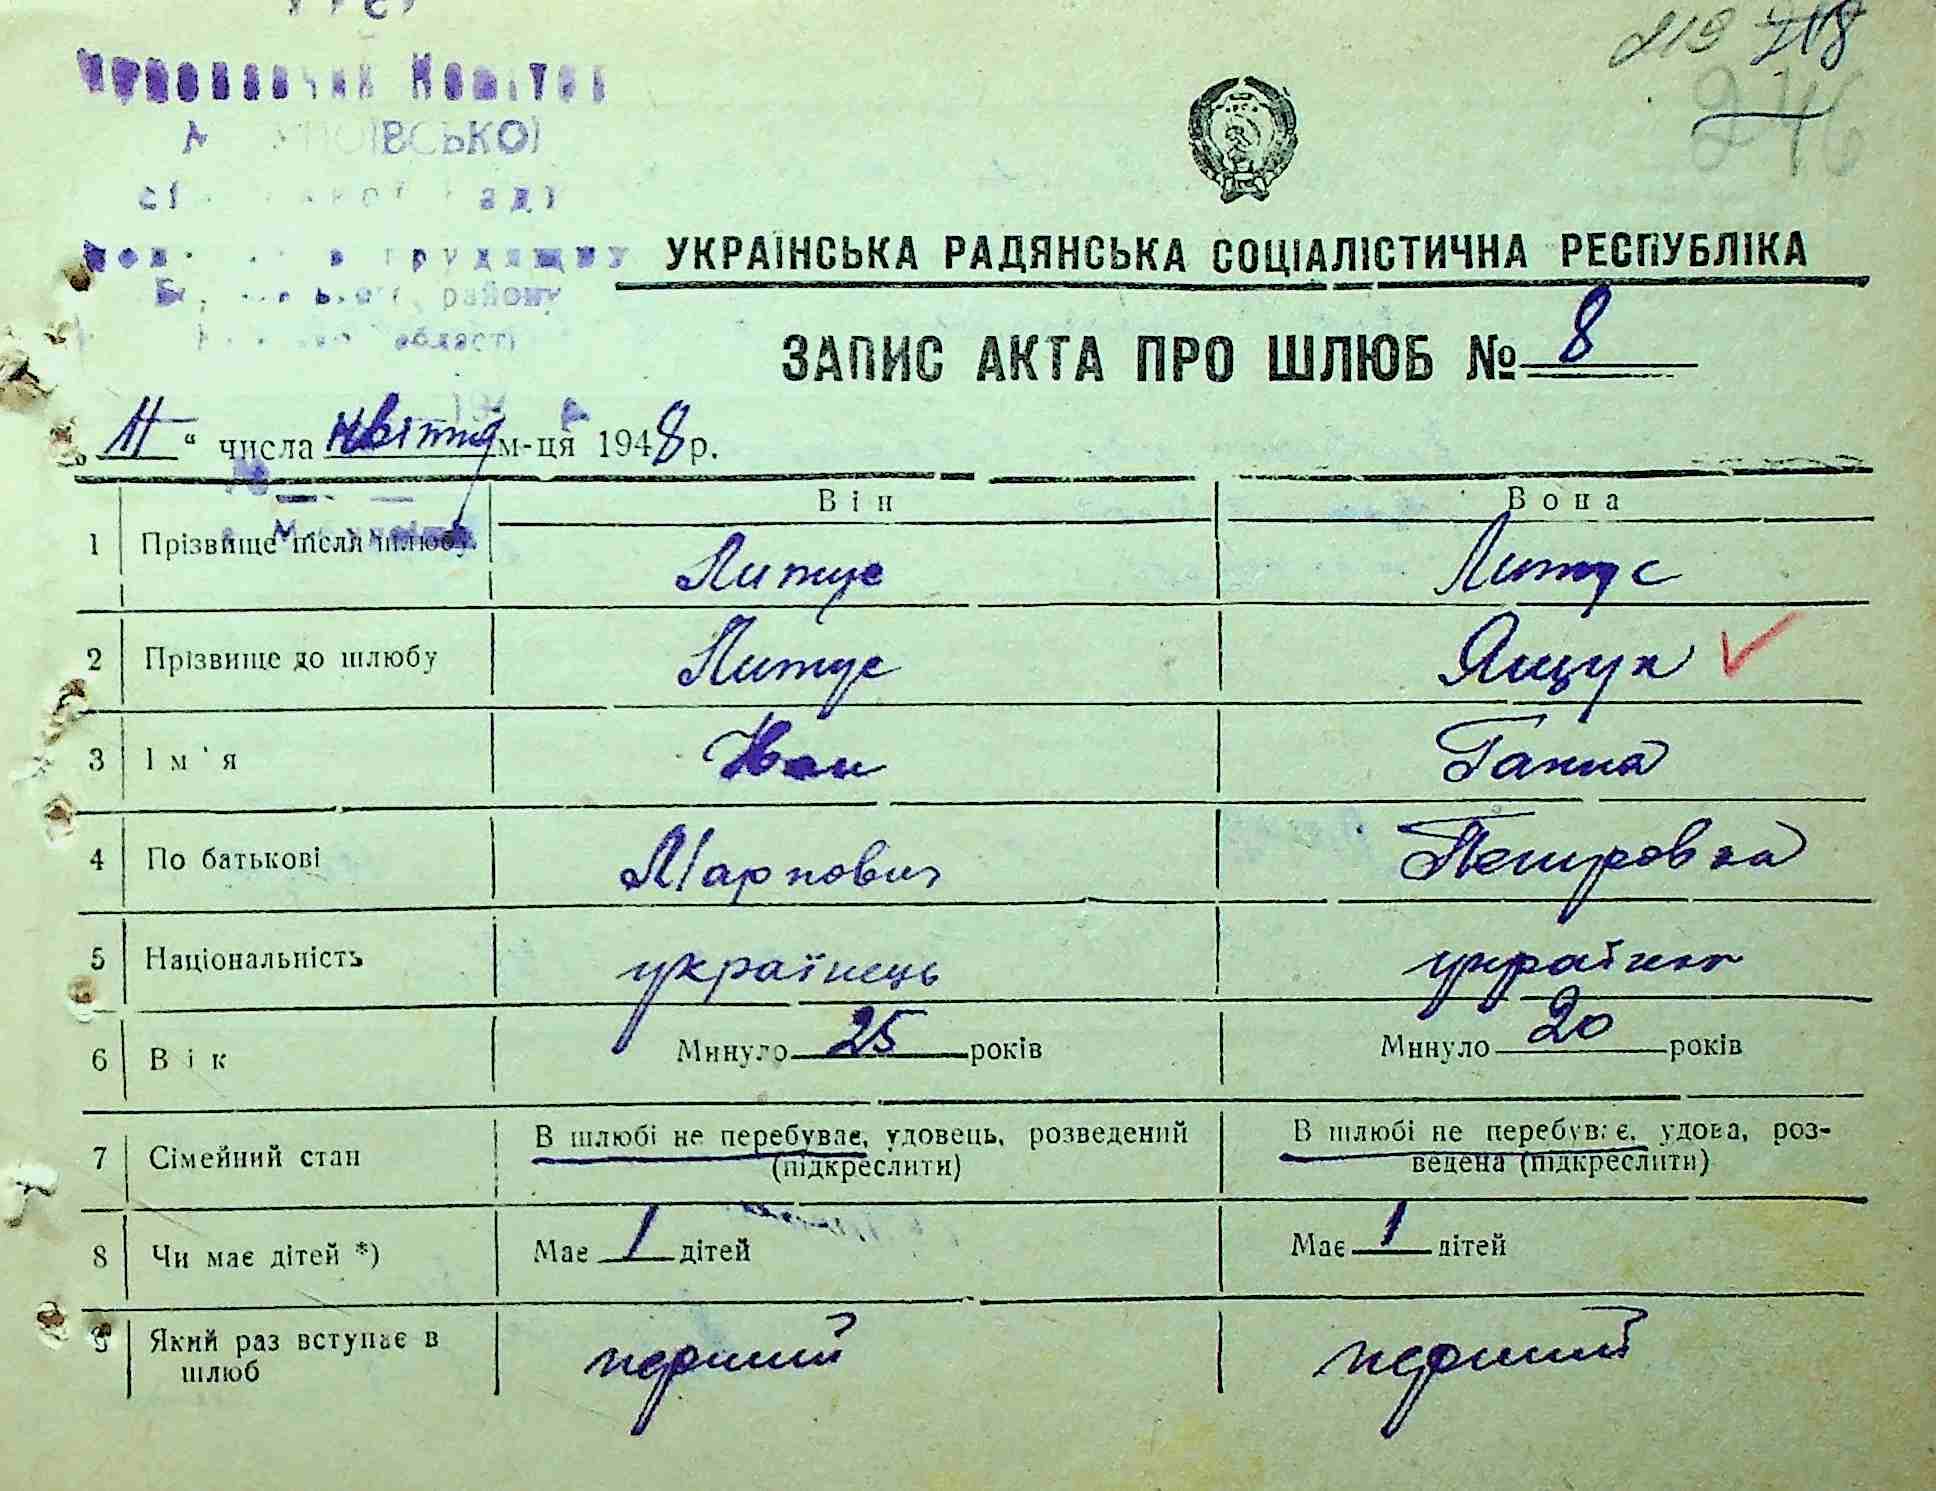 УРСР
Виконавчий Комітет
сільської ради
депутатів трудящих
району
області
218 718
246
УКРАЇНСЬКА РАДЯНСЬКА СОЦІАЛІСТИЧНА РЕСПУБЛІКА
ЗАПИС АКТА ПРО ШЛЮБ № 8
„11“ числа квітня м-ця 1948 р.
Він Вона
1 Прізвище після шлюбу Литус Литус
2 Прізвище до шлюбу Литус Ящук
3 Ім'я Іван Ганна
4 По батькові Маркович Петровна
5 Національність українець українка
6 Вік Минуло 25 років Минуло 20 років
7 Сімейний стан В шлюбі не перебуває, удовець, розведений (підкреслити) В шлюбі не перебуває, удова, розведена (підкреслити)
8 Чи має дітей *) Має 1 дітей Має 1 дітей
9 Який раз вступає в шлюб перший перший